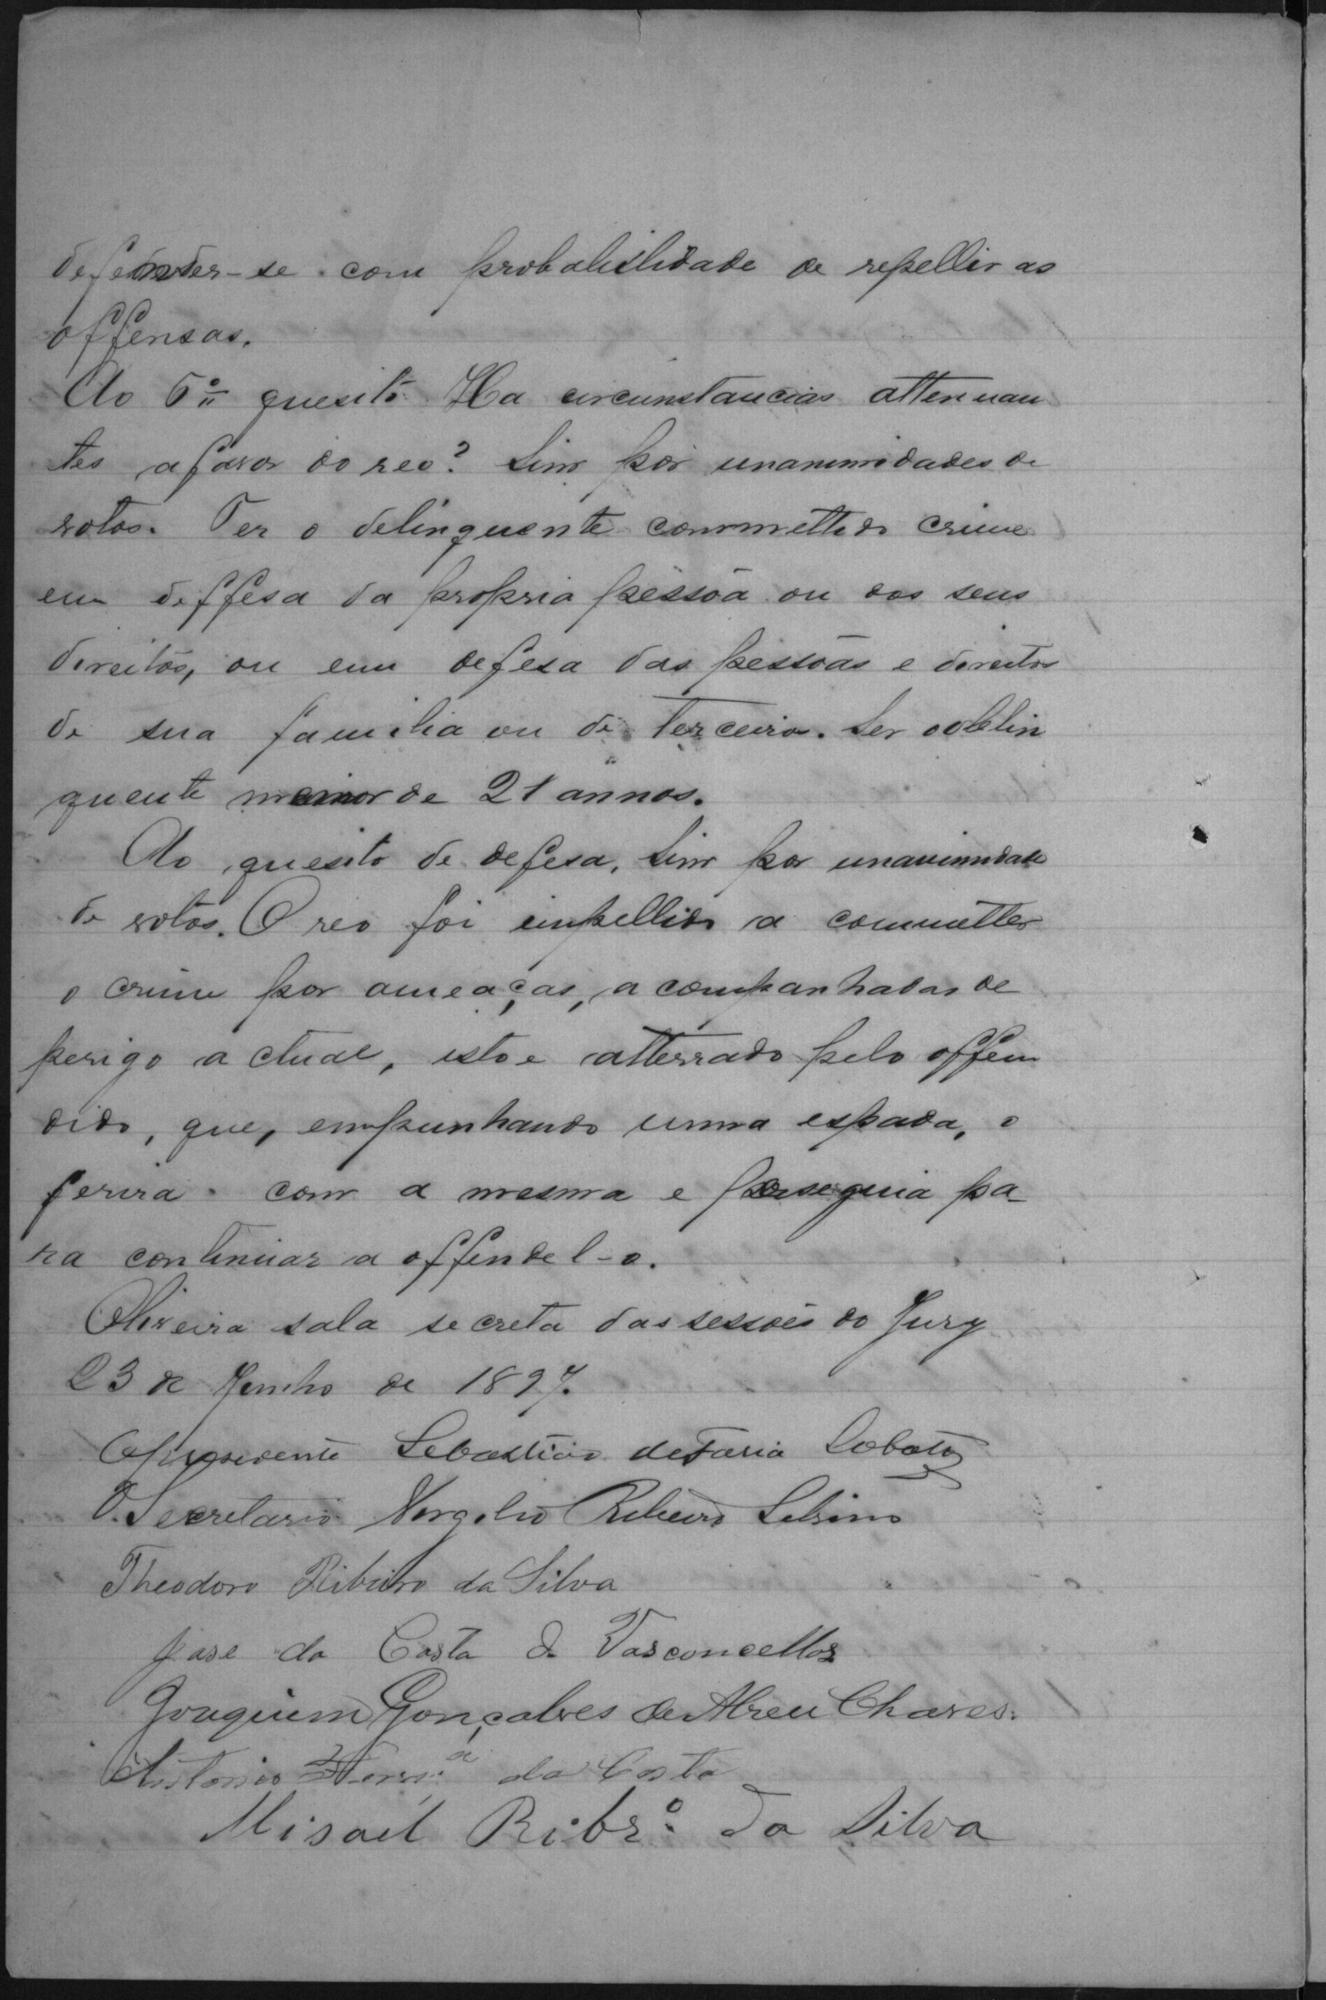 defender-se com probabilidade de repellir as
offensas.
Ao 5º quesito Ha circunstancias attenuan
tes a favor do reo? Sim por unanimidades de
votos. Ter o delinquente commettido crime
em deffesa da propria pessôa ou dos seus
direitos, ou em defesa das pessôas e direitos
de sua familia ou de terceiro. Ser o delin
quente menor de 21 annos.
Ao quesito de defesa, Sim por unanimidade
de votos. O reo foi impellido a commetter
o crime por ameaças, acompanhadas de
perigo actual, isto e atterrado pelo offen
dido, que, empunhando uma espada, o
ferira com a mesma e perseguia pa-
ra continuar a offendel-o.
Oliveira sala secreta das sessões do Jury
23 de Junho de 1897.
O presidente Sebastião de Faria Lobato
O Secretario Vergilio Ribeiro
Theodoro Ribeiro da Silva
Jose da Costa de Vasconcellos
Joaquim Gonçalves de Abreu Chaves.
Antonio da Costa
Misael Ribrº da Silva